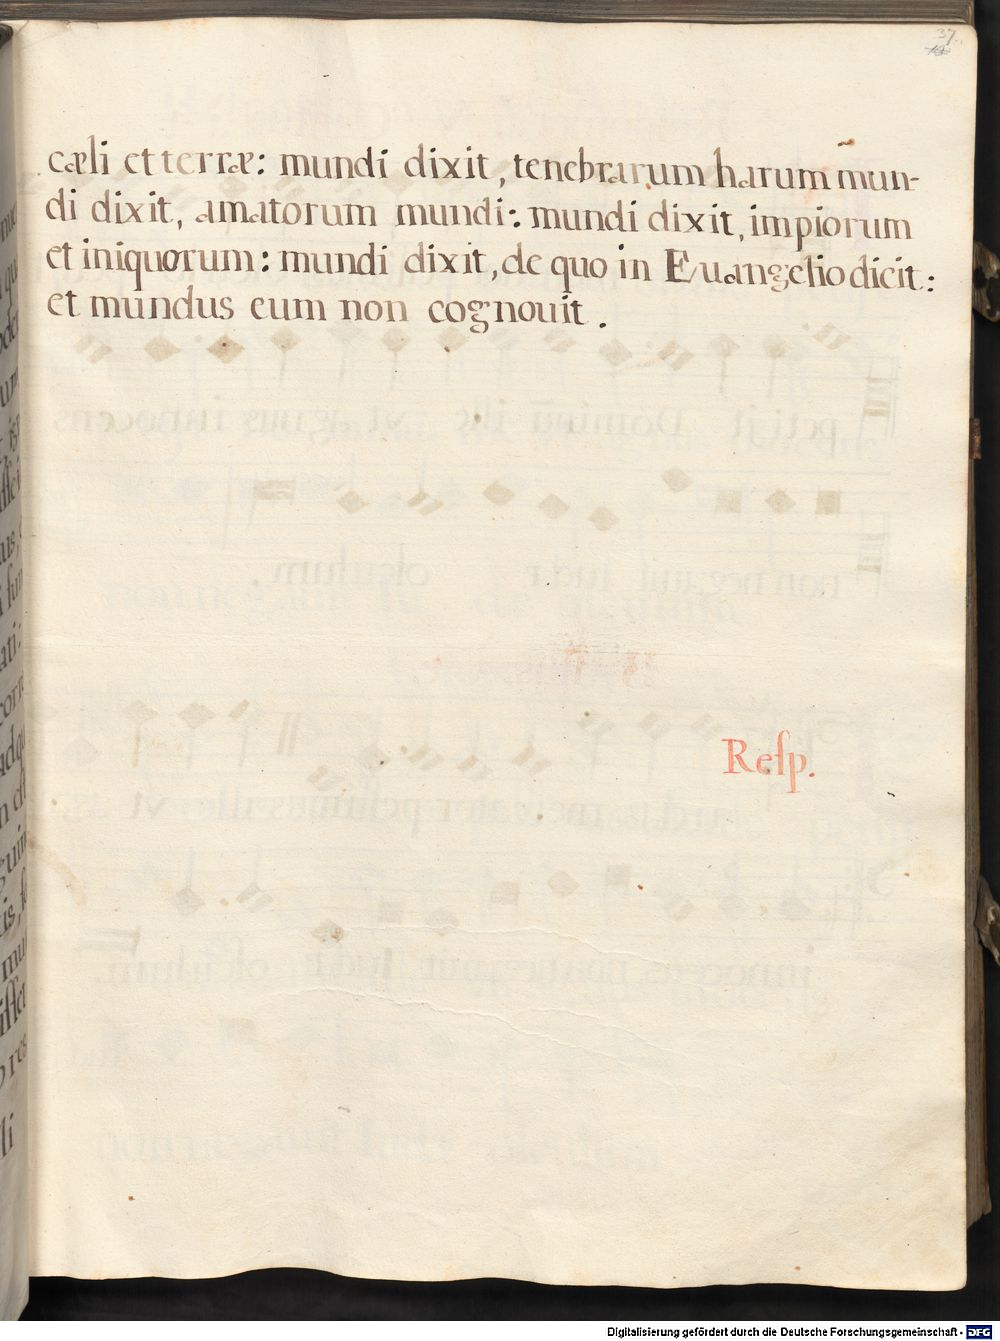 37.
cæli et terræ: mundi dixit, tenebrarum harum mun-
di dixit, amatorum mundi: mundi dixit, impiorum
et iniquorum: mundi dixit, de quo in Euangelio dicit:
et mundus eum non cognouit.
Reſp.
Digitalisierung gefördert durch die Deutsche Forschungsgemeinschaft - DFG